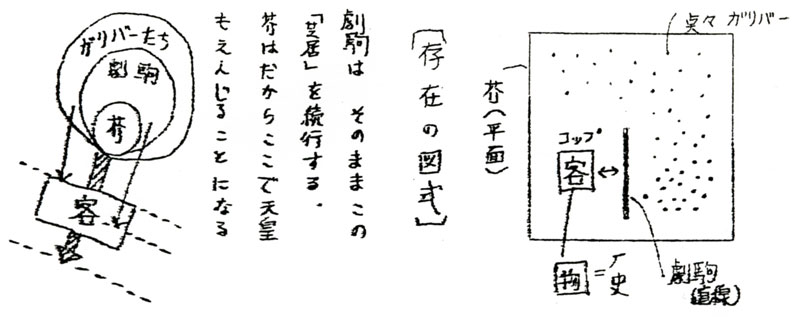 点々 ガリバー
芥(平面)
コップ
客
↔
物=厂史
劇駒
(直線)
[存在の図式]
劇駒は そのままこの
「芝居」を続行する.
芥はだからここで天皇
もえんじることになる
ガリバーたち
劇駒
芥
客